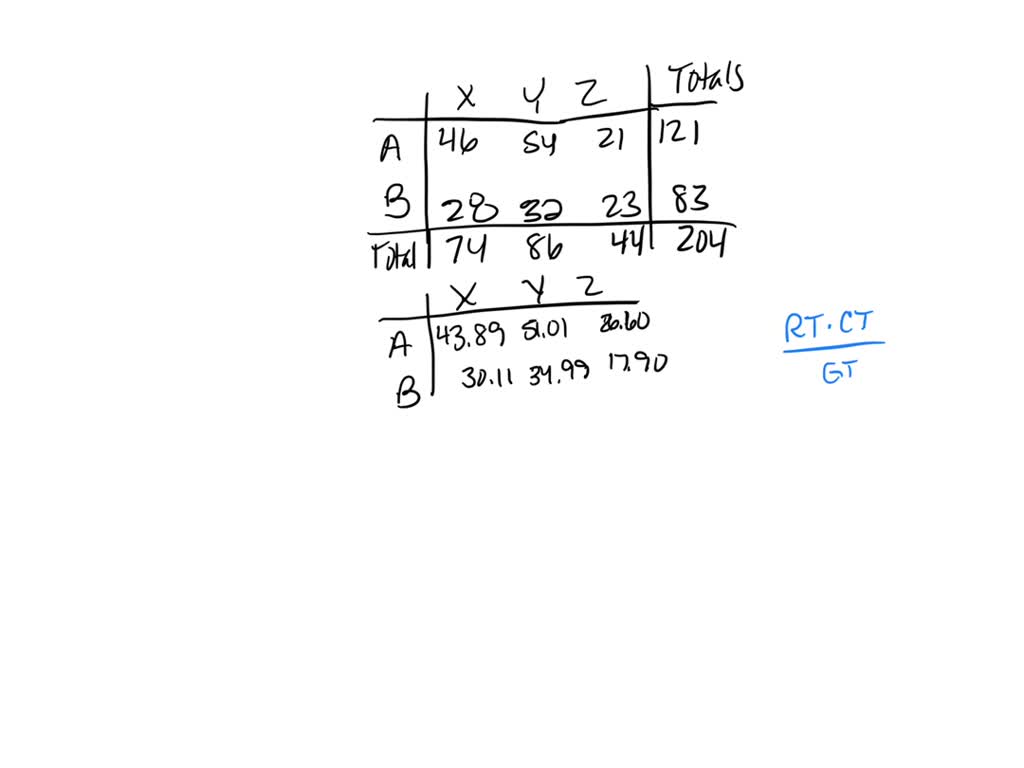 X Y Z Totals
A 46 54 21 121
B 28 32 23 83
Total 74 86 44 204
X Y Z
A 43.89 51.01 26.60
B 30.11 34.99 17.90
RT·CT
GT